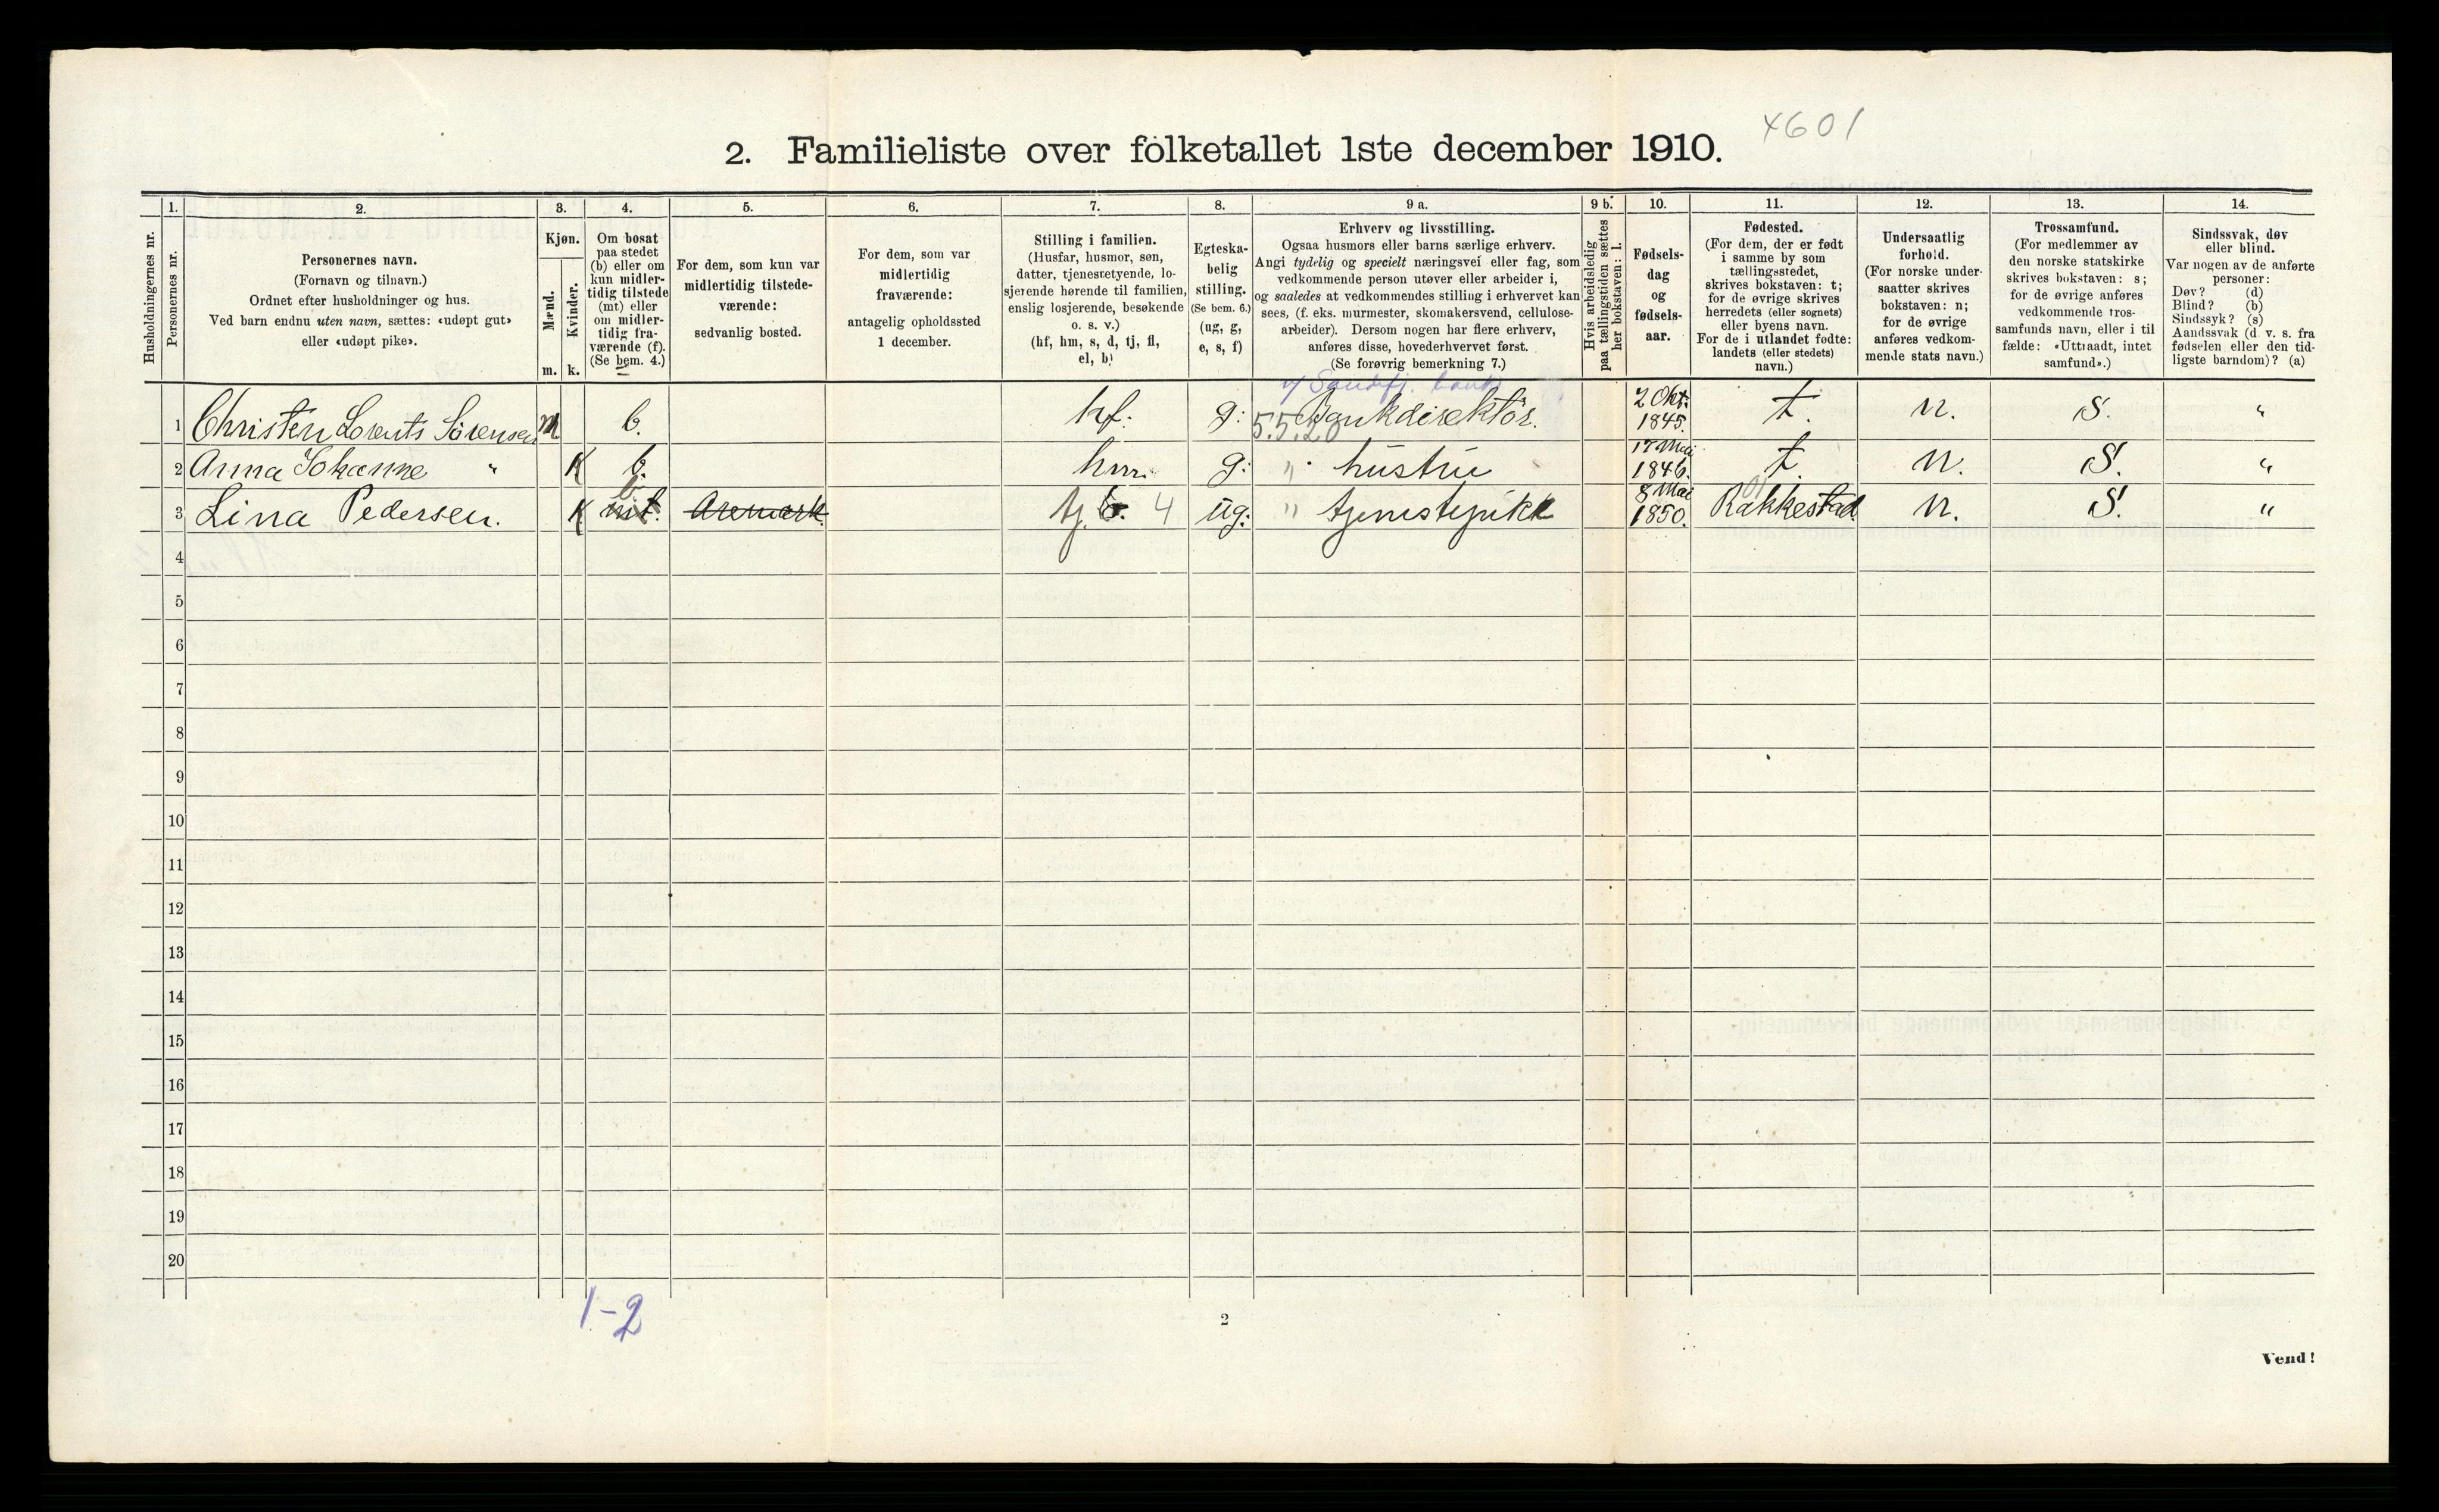 4601
2. Familieliste over folketallet 1ste december 1910.
Husholdningernes nr.
1.
Personernes nr.
2.
Personernes navn.
(Fornavn og tilnavn.)
Ordnet efter husholdninger og hus.
Ved barn endnu uten navn, sættes: «udøpt gut»
eller «udøpt pike».
3.
Kjøn.
Mænd.
Kvinder.
m. k.
4.
Om bosat
paa stedet
(b) eller om
kun midler-
tidig tilstede
(mt) eller
om midler-
tidig fra-
værende (f).
(Se bem. 4.)
5.
For dem, som kun var
midlertidig tilstede-
værende:
sedvanlig bosted.
6.
For dem, som var
midlertidig
fraværende:
antagelig opholdssted
1 december.
7.
Stilling i familien.
(Husfar, husmor, søn,
datter, tjenestetyende, lo-
sjerende hørende til familien,
enslig losjerende, besøkende
o. s. v.)
(hf, hm, s, d, tj, fl,
el, b)
8.
Egteska-
belig
stilling.
(Se bem. 6.)
(ug, g,
e, s, f)
9 a.
Erhverv og livsstilling.
Ogsaa husmors eller barns særlige erhverv.
Angi tydelig og specielt næringsvei eller fag, som
vedkommende person utøver eller arbeider i,
og saaledes at vedkommendes stilling i erhvervet kan
sees, (f. eks. murmester, skomakersvend, cellulose-
arbeider). Dersom nogen har flere erhverv,
anføres disse, hovederhvervet først.
(Se forøvrig bemerkning 7.)
9 b.
Hvis arbeidsledig
paa tællingstiden sættes
her bokstaven: l.
10.
Fødsels-
dag
og
fødsels-
aar.
11.
Fødested.
(For dem, der er født
i samme by som
tællingsstedet,
skrives bokstaven: t;
for de øvrige skrives
herredets (eller sognets)
eller byens navn.
For de i utlandet fødte:
landets (eller stedets)
navn.)
12.
Undersaatlig
forhold.
(For norske under-
saatter skrives
bokstaven: n;
for de øvrige
anføres vedkom-
mende stats navn.)
13.
Trossamfund.
(For medlemmer av
den norske statskirke
skrives bokstaven: s;
for de øvrige anføres
vedkommende tros-
samfunds navn, eller i til
fælde: «Uttraadt, intet
samfund».)
14.
Sindssvak, døv
eller blind.
Var nogen av de anførte
personer:
Døv? (d)
Blind? (b)
Sindssyk? (s)
Aandssvak (d. v. s. fra
fødselen eller den tid-
ligste barndom)? (a)
v/ Sandefj. bank
1 Christen Lorents Sörensen m b. hf. g: 5.5.20 Bankdirektör. 2 Okt. 1845. t. n. S. "
2 Anna Johanne " K b. hm. g: " hustru 17 Mai 1846. t n. S. "
3 Lina Pedersen. K mt. b. Aremark. tj. b. 4 ug: " tjenestepike 8 Mai 1850. 01 Rakkestad n. S. "
4
5
6
7
8
9
10
11
12
13
14
15
16
17
18
19
20
1-2
2
Vend!